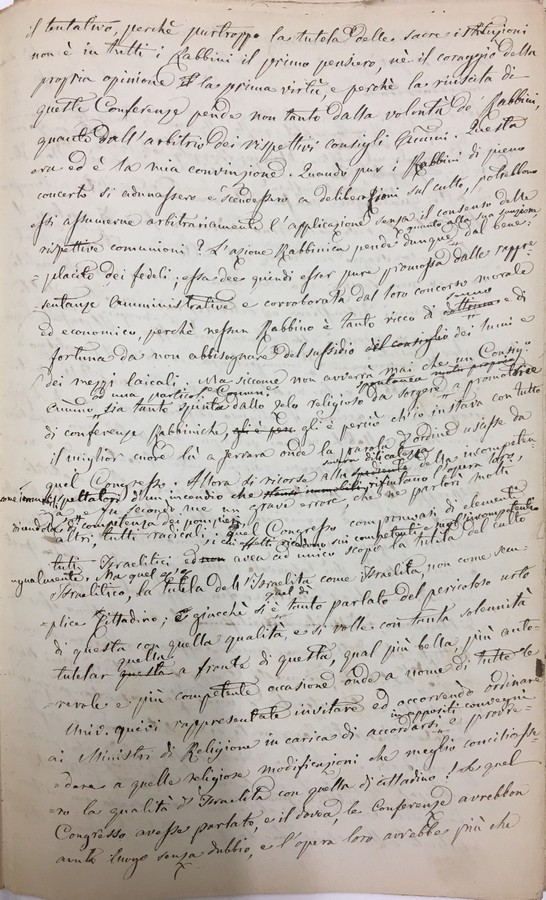 il tentativo, perchè purtroppo la tutela delle sacre istituzioni
non è in tutti i Rabbini il primo pensiero, nè il coraggio della
propria opinione è la prima virtù, e perchè la riuscita di
queste Conferenze pende non tanto dalla volontà de' Rabbini,
quanto dall'arbitrio dei rispettivi consigli Com̃uni. Questa
era ed è la mia convinzione. Quando pur i Rabbini di pieno
concerto si adunassero e scendessero a deliberazioni sul culto, potrebbono
essi assumerne arbitrariamente l'applicazione senza il consenso delle
quanto alla sua
rispettive comunioni? L'azione Rabbinica pende dunque dal bene-
=placito dei fedeli; essa dee quindi esser pure promossa dalle rappre-
=sentanze amministrative e corroborata dal loro concorso morale
senno
ed economico, perchè nessun Rabbino è tanto ricco di e di
fortuna da non abbisognare del sussidio del consiglio dei lumi e
dei mezzi laicali. Ma siccome non avverrà mai che un Consig.º
ad una partico
spontanea
Com̃uno sia tanto spinto dallo zelo religioso da sorgere a promotore
di conferenze Rabbiniche, gli è perciò ch'io instava con tutto
il miglior cuore là a Ferrara onde la parola d'ordine uscisse da
quel Congresso. Allora si ricorse alla della incompeten
spettatori d'un incendio che rifiutano l'opera loro,
secondo me un grave errore, che ne partorì molti
la competenza dei pompieri
altri, tutti radicali. Quel Congresso componeasi di elementi
sui competenti e sugl'incompetenti
tutti Israelitici ed non avea ad unico scopo la tutela del culto
ugualmente. Ma quel
Israelitico, la tutela dell'Israelita come Israelita, non come sem-
quel di
plice Cittadino; E giacchè si è tanto parlato del pericoloso urto
di questa con quella qualità, e si volle con tanta solennità
quella
tutelar questa a fronte di questa, qual più bella, più auto-
revole e più competente occasione onde a nome di tutte le
Univ. quivi rappresentate invitare ed accorrendo ordinare
in appositi convegni
ai Ministri di Religione in carica di accordarsi e provve-
=dere a quelle religiose modificazioni che meglio conciliasse-
=ro la qualità d'Israelita con quella di cittadino! Se quel
Congresso avesse parlato, e il dovea, le Conferenze avrebbon
avuto luogo senza dubbio, e l'opera loro avrebbe più che